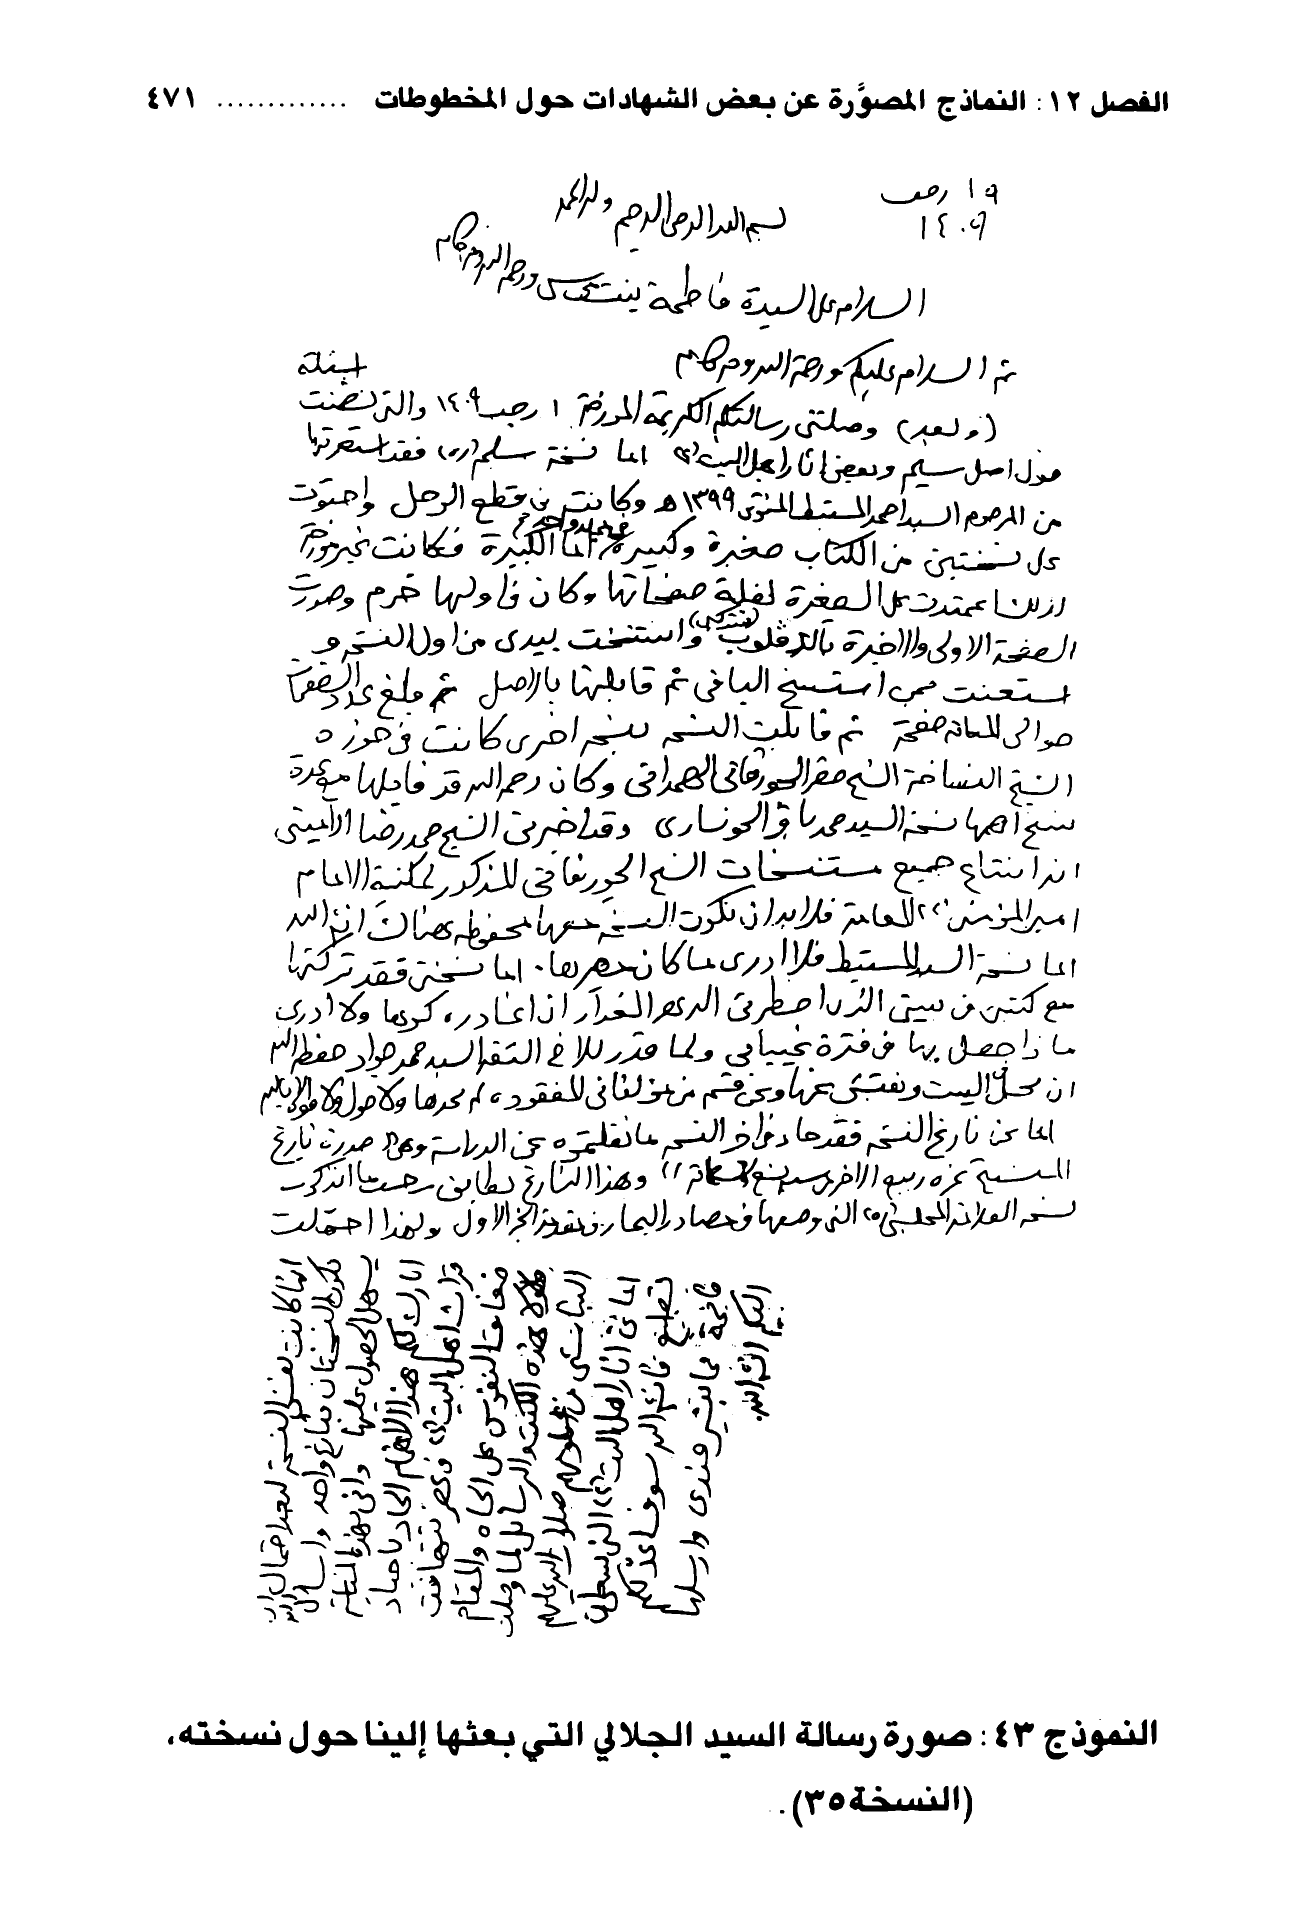 الفصل ١٢: النماذج المصوَّرة عن بعض الشهادات حول المخطوطات ............. ٤٧١
١٩ رجب
١٤٠٩
بسم الله الرحمن الرحيم وله الحمد
السلام على السيدة فاطمة بنت موسى ورحمة الله وبركاته
ثم السلام عليكم ورحمة الله وبركاته
(وبعد) وصلتني رسالتكم الكريمة المورخة ١ رجب ١٤٠٩ والتي تضمنت اسئلة
حول اصل سليم وبعض اثار اهل البيت (ع) اما نسخة سليم (ره) فقد استعرتها
من المرحوم السيد احمد المستنبط المتوفى ١٣٩٩ هـ وكانت في قطع الرحل واحتوت
على نسختين من الكتاب صغيرة وكبيرة في مجلد واحد اما الكبيرة فكانت غير مورخة
لذلك اعتمدت على الصغيرة لقلة صفحاتها وكان في اولها خرم وصورت
الصفحة الاولى والاخيرة واستنسخت بيدي من اول النسخة و
استعنت بمن استنسخ الباقي ثم قابلتها بالاصل ثم بلغ عدد الصفحات
حوالي المائة صفحة ثم قابلت النسخة بنسخة اخرى كانت في حوزة
الشيخ النساخة الشيخ الجورقاني الهمداني وكان رحمه الله قد قابلها مع عدة
نسخ اهمها نسخة السيد محمد باقر الخونساري وقد اخبرني الشيخ محمد رضا الأميني
انه ابتاع جميع مستنسخات الشيخ الجورقاني المذكور لمكتبة الامام
امير المؤمنين (ع) العامة فلا بد ان تكون النسخة معها محفوظة هناك انشاء الله
اما نسخة السيد المستنبط فلا ادري ما كان مصيرها. اما نسختي فقد تركتها
مع كتبي في بيتي الذي اضطرني الدهر الغدار ان اغادره كرها ولا ادري
ماذا حصل بها في فترة غيابي ولما قدر للاخ الثقة السيد محمد جواد حفظه الله
ان يحل البيت ويفتش عنها وعن قسم من مؤلفاتي المفقودة لم يجدها ولا حول ولا قوة الا بالله
اما عن تاريخ النسخة فقد جاء في اخر النسخة ما نقلتموه عن الدراسة وهو صدرت تاريخ
النسخ غرة ربيع الاخر وهذا التاريخ يطابق
نسخة العلامة المجلسي (ره) التي وصفها في مصادر البحار في مقدمة الجزء الاول ولهذا احتملت
انها كانت نفس النسخة لبعد احتمال ان
تكون النسختان بتاريخ واحد واسال الله
يسهل الحصول عليها واني بهذه المناسبة
ابارك لكم هذا الاهتمام الجاد باحياء
تراث اهل البيت (ع) في عصر تتهافت
النفوس على الجاه والمقام
فلولا هذه الكتب والرسايل لما وصلت
الينا شي من علومهم صلوات الله عليهم
اما عن اثار اهل البيت (ع) التي
تطبع فانه الله سوف اعد لكم
قائمة بما يتيسر عندي وارسلها
اليكم انشاء الله
النموذج ٤٣: صورة رسالة السيد الجلالي التي بعثها إلينا حول نسخته،
(النسخة ٣٥).